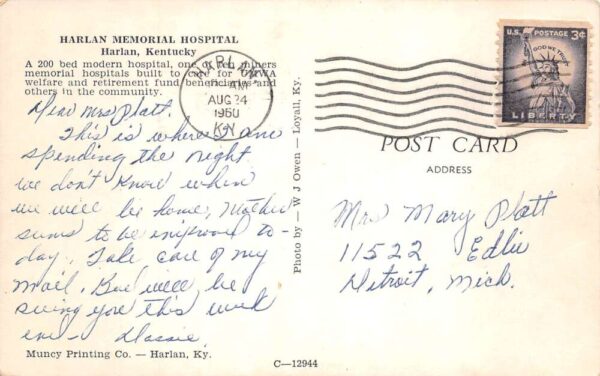 HARLAN MEMORIAL HOSPITAL
Harlan, Kentucky
A 200 bed modern hospital, one of ten miners
memorial hospitals built to care for UMWA
welfare and retirement fund beneficiaries and
others in the community.
HARLAN
AM
AUG 24
1960
KY
U.S. POSTAGE 3¢
IN GOD WE TRUST
LIBERTY
Dear Mrs Platt.
This is where I am
spending the night
we don't know when
we will be home, Mother
seems to be improved to-
day. Take care of my
mail. will be
seeing you this week
end -
Photo by — W J Owen — Loyall, Ky.
POST CARD
ADDRESS
Mrs Mary Platt
11522
Detroit, Mich.
Muncy Printing Co. — Harlan, Ky.
C—12944